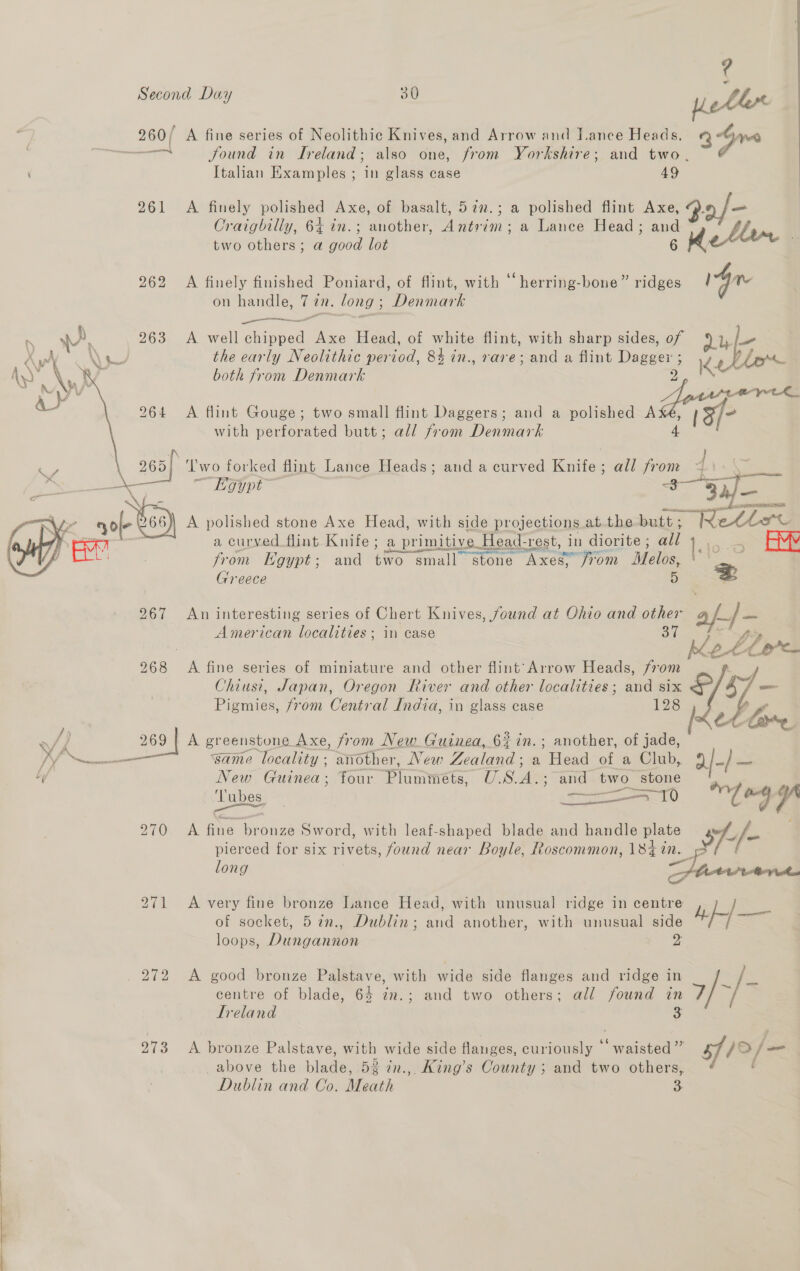 ?
Second Day 30
Ketlor
260/ A fine series of Neolithic Knives, and Arrow and Lance Heads,
found in Ireland; also one, from Yorkshire; and two
Italian Examples; in glass case 49
261 A finely polished Axe, of basalt, 5 in.; a polished flint Axe,
Craigbilly, 6¼ in.; another, Antrim; a Lance Head; and
two others; a good lot 6
262 A finely finished Poniard, of flint, with "herring-bone" ridges
on handle, 7 in. long; Denmark
263 A well chipped Axe Head, of white flint, with sharp sides, of
the early Neolithic period, 8½ in., rare; and a flint Dagger;
both from Denmark 2
264 A flint Gouge; two small flint Daggers; and a polished Axe, 13/-
with perforated butt; all from Denmark 4
265 Two forked flint Lance Heads; and a curved Knife; all from
Egypt 3
266 A polished stone Axe Head, with side projections at the butt;
a curved flint Knife; a primitive Head-rest, in diorite; all
from Egypt; and two small stone Axes, from Melos,
Greece 5
EM
EM
267 An interesting series of Chert Knives, found at Ohio and other
American localities; in case 37
268 A fine series of miniature and other flint Arrow Heads, from
Chiusi, Japan, Oregon River and other localities; and six
Pigmies, from Central India, in glass case 128
269 A greenstone Axe, from New Guinea, 6¾ in.; another, of jade,
same locality; another, New Zealand; a Head of a Club, 2/-/-
New Guinea; four Plummets, U.S.A.; and two stone
Tubes 10
270 A fine bronze Sword, with leaf-shaped blade and handle plate
pierced for six rivets, found near Boyle, Roscommon, 18¼ in.
long
271 A very fine bronze Lance Head, with unusual ridge in centre 4/-/-
of socket, 5 in., Dublin; and another, with unusual side
loops, Dungannon 2
272 A good bronze Palstave, with wide side flanges and ridge in 7/-/-
centre of blade, 6½ in.; and two others; all found in
Ireland 3
273 A bronze Palstave, with wide side flanges, curiously "waisted"
above the blade, 5¾ in., King's County; and two others,
Dublin and Co. Meath 3